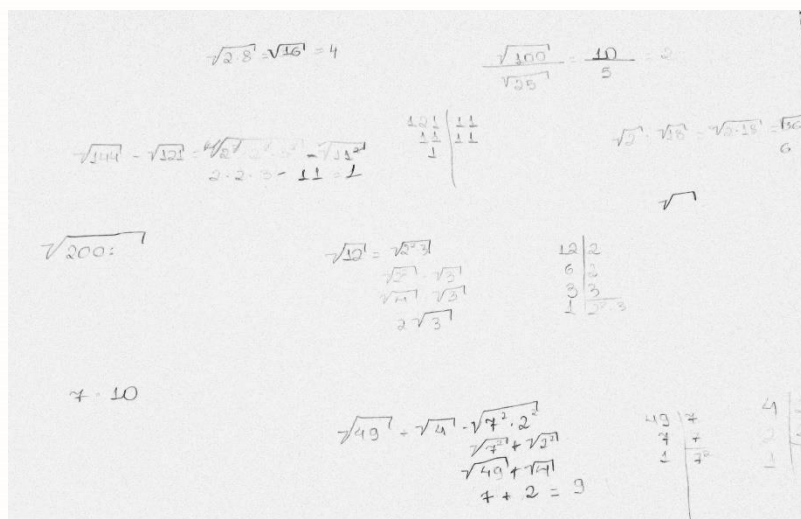 √2·8 = √16 = 4
√100 / √25 = 10 / 5 = 2
√144 - √121 = √2² · 2² · 3² - √11²
2 · 2 · 3 - 11 = 1
121 | 11
11 | 11
1
√2 · √18 = √2·18 = √36
6
√
√200:
√12 = √2²·3
√2² · √3
√4 · √3
2√3
12 | 2
6 | 2
3 | 3
1 | 2²·3
7 · 10
√49 + √4 = √7² · 2²
√7² + √2²
√49 + √4
7 + 2 = 9
49 | 7
7 | 7
1 | 7²
4
2
1